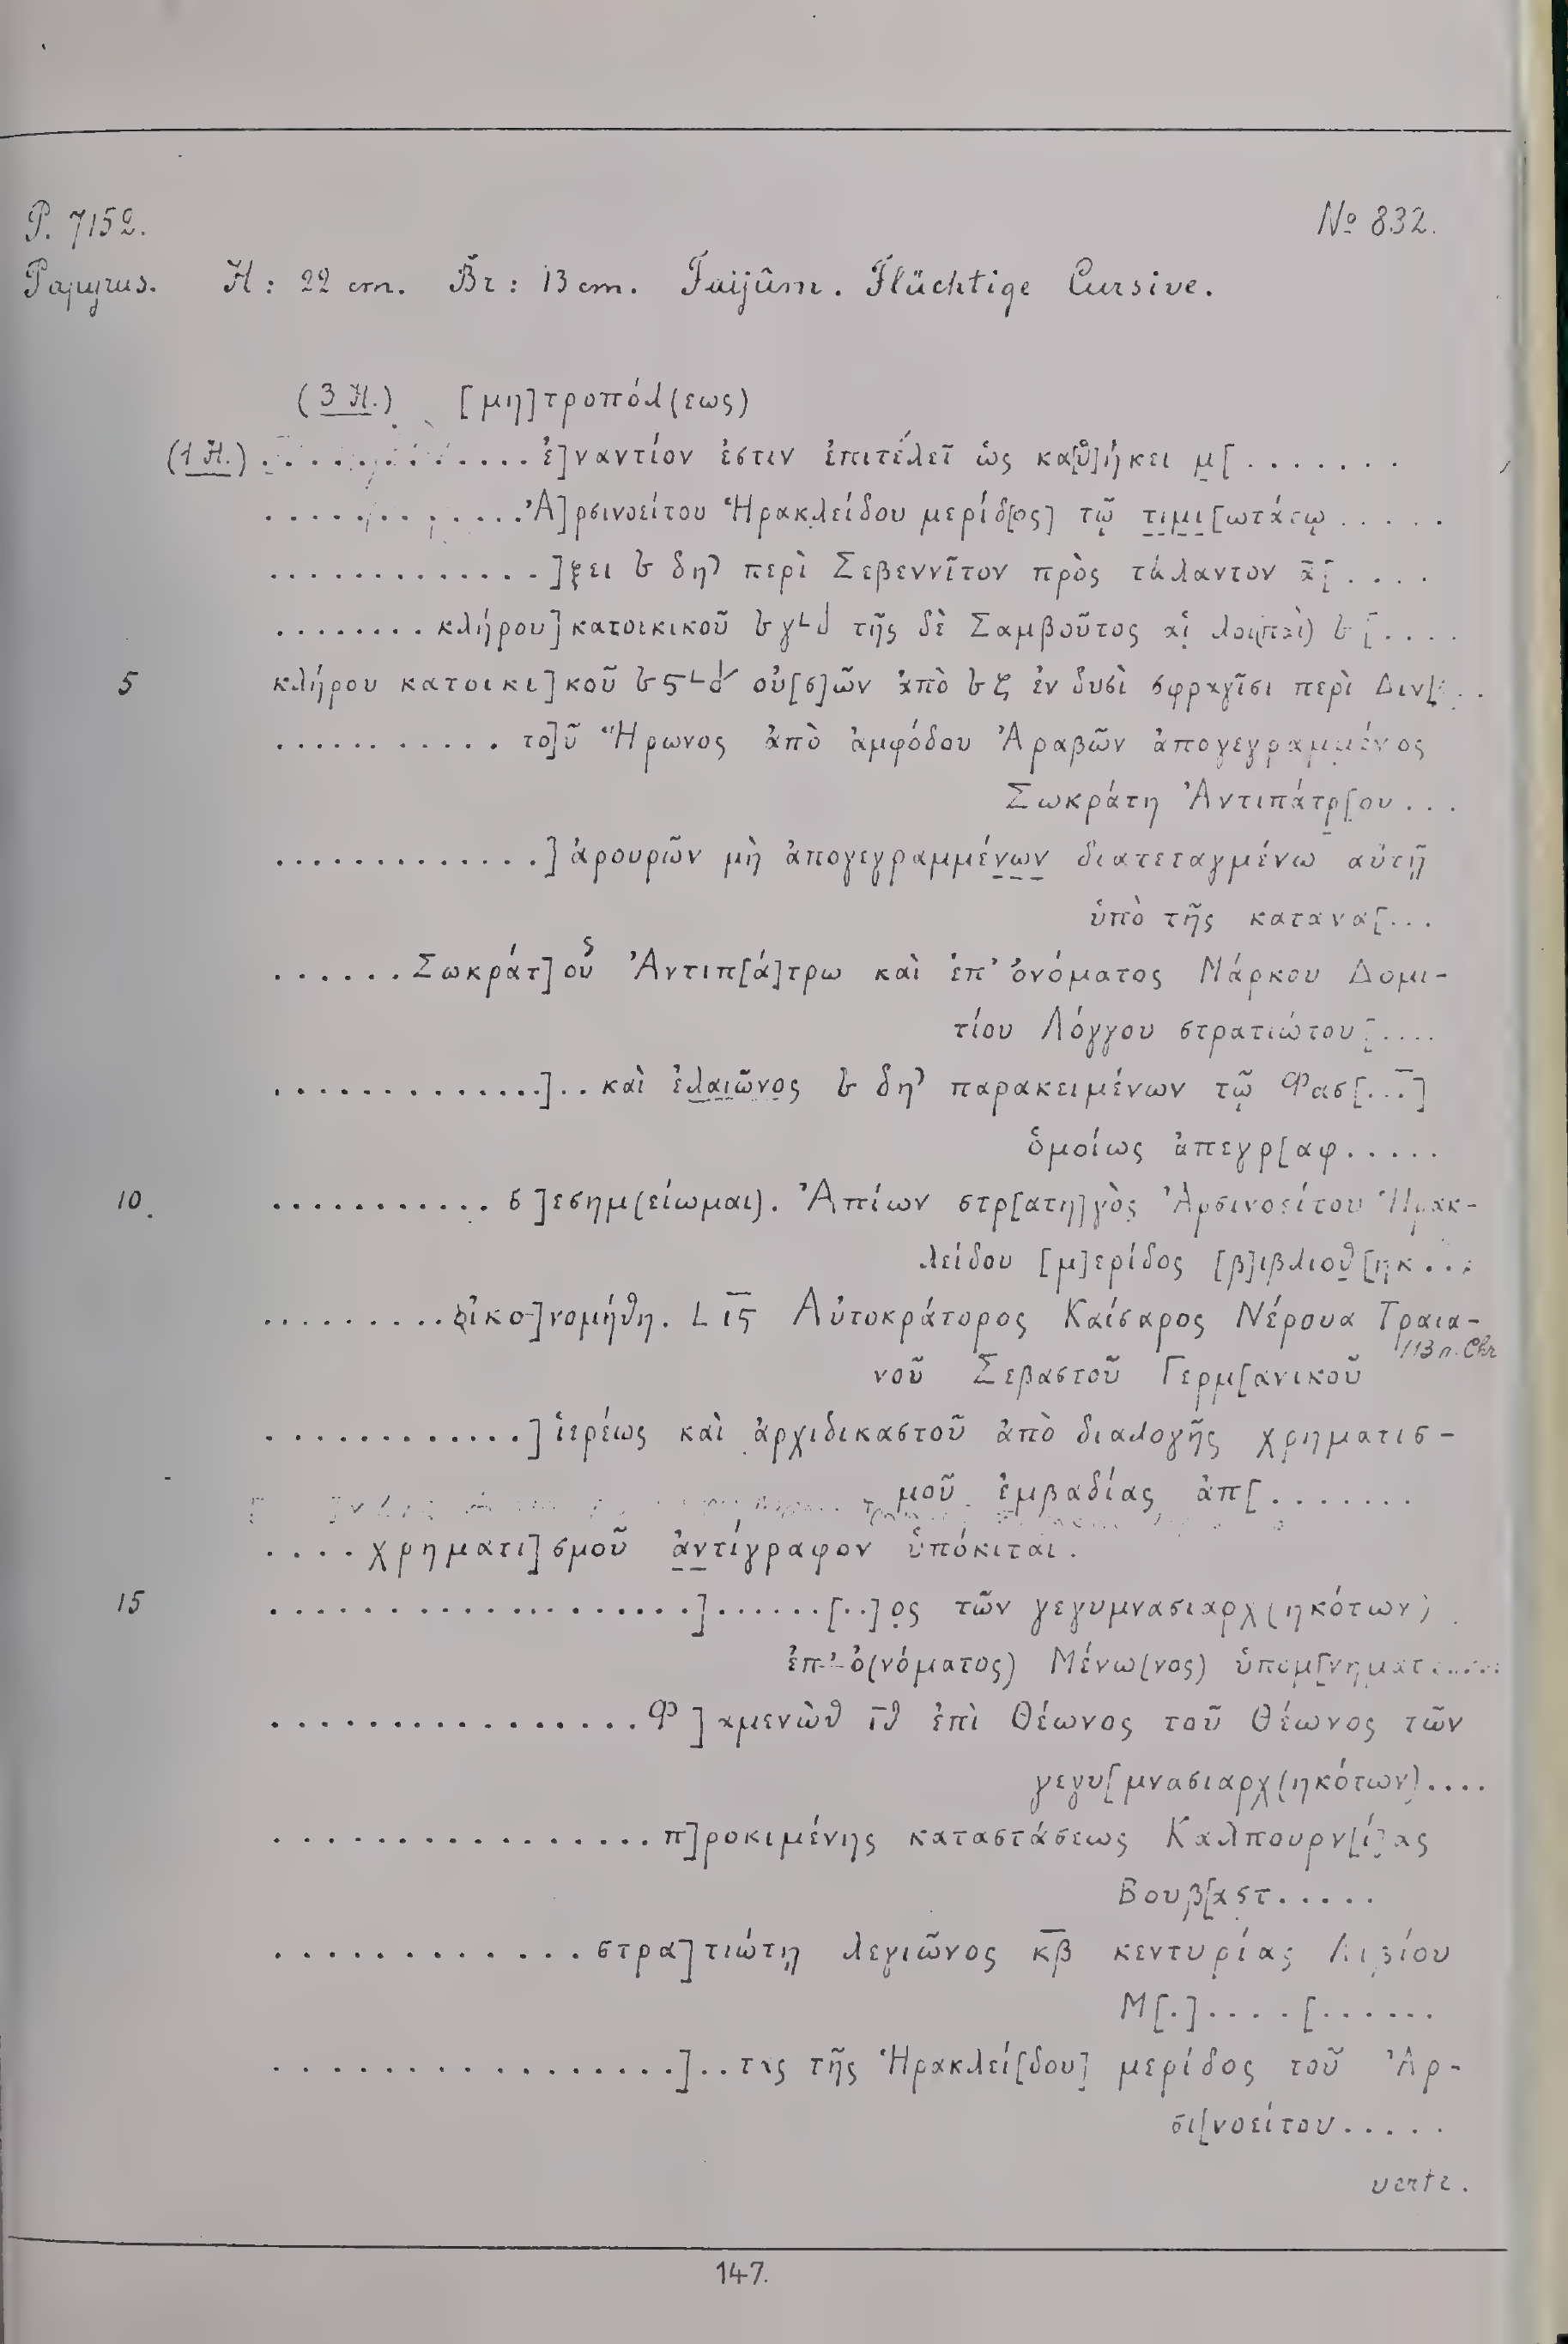 P. 7152. № 832.
Papyrus. H: 22 cm. Br: 13 cm. Faijûm. Flüchtige Cursive.
(3 H.) [μη]τροπόλ(εως)
(1 H.) . . . . . . . . . . . . . ἐ]ναντίον ἐστιν ἐπιτέλεῖ ὡς κα[θ]ήκει μ[ . . . . . . .
. . . . . . . . . . . . Ἀ]ρσινοείτου Ἡρακλείδου μερίδ[ος] τῷ τιμι[ωτάτῳ . . . . .
. . . . . . . . . . . . . ]ξει ⳑ δηʾ περὶ Σεβεννῖτον πρὸς τάλαντον ᾱ[ . . . .
. . . . . . . . κλήρου] κατοικικοῦ ⳑ γ∟δ τῆς δὲ Σαμβοῦτος αἱ λοι(παὶ) ⳑ [ . . . .
5 κλήρου κατοικι]κοῦ ⳑ ϛ∟δ οὐ[σ]ῶν ἀπὸ ⳑ ζ ἐν δυσὶ σφραγῖσι περὶ Διν[ . . .
. . . . . . . . . . . το]ῦ Ἥρωνος ἀπὸ ἀμφόδου Ἀραβῶν ἀπογεγραμμένος
Σωκράτη Ἀντιπάτρ[ου . . .
. . . . . . . . . . . . . ] ἀρουρῶν μὴ ἀπογεγραμμένων διατεταγμένω αὐτῇ
ὑπὸ τῆς κατανα[ . . .
. . . . . . Σωκράτ]οὐς Ἀντιπ[ά]τρω καὶ ἐπ’ ὀνόματος Μάρκου Δομι-
τίου Λόγγου στρατιώτου [ . . . .
. . . . . . . . . . . . . ] . . καὶ ἐλαιῶνος ⳑ δηʾ παρακειμένων τῷ Φασ[ . . . ]
ὁμοίως ἀπεγρ[αφ . . . . .
10. . . . . . . . . . . . σ]εσημ(είωμαι). Ἀπίων στρ[ατη]γὸς Ἀρσινοείτου Ἡρακ-
λείδου [μ]ερίδος [β]ιβλιοθ[ηκ . . .
. . . . . . . . . οἰκο]νομήθη. L ιϛ̅ Αὐτοκράτορος Καίσαρος Νέρουα Τραια-
113 n. Chr
νοῦ Σεβαστοῦ Γερμ[ανικοῦ
. . . . . . . . . . . . ] ἱερέως καὶ ἀρχιδικαστοῦ ἀπὸ διαλογῆς χρηματισ-
μοῦ ἐμβαδίας ἀπ[ . . . . . . .
. . . . χρηματι]σμοῦ ἀντίγραφον ὑπόκιται.
15 . . . . . . . . . . . . . . . . . . . . ] . . . . . . [ . . ]ος τῶν γεγυμνασιαρχ(ηκότων)
ἐπ’ ὀ(νόματος) Μένω(νος) ὑπομ[νηματ . . . . .
. . . . . . . . . . . . . . . . Φ]αμενὼθ ιθ̅ ἐπὶ Θέωνος τοῦ Θέωνος τῶν
γεγυ[μνασιαρχ(ηκότων) . . . .
. . . . . . . . . . . . . . . . π]ροκιμένης καταστάσεως Καλπουρν[ί]ας
Βουβ[αστ . . . . .
. . . . . . . . . . . . . στρα]τιώτῃ λεγιῶνος κ̅β̅ κεντυρίας Λιβίου
Μ[ . ] . . . . [ . . . . . .
. . . . . . . . . . . . . . . . . ] . . τας τῆς Ἡρακλεί[δου] μερίδος τοῦ Ἀρ-
σι[νοείτου . . . . .
verte.
147.